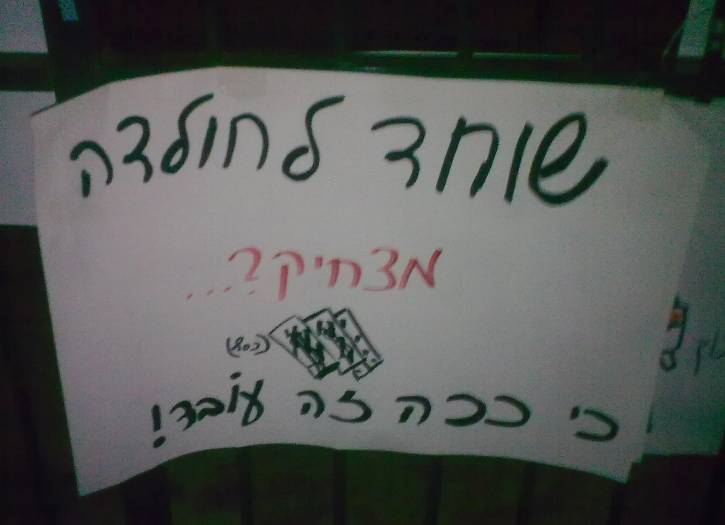 שוחד לחולדה
מצחיק?...
(כסף)
כי ככה זה עוֹבד!